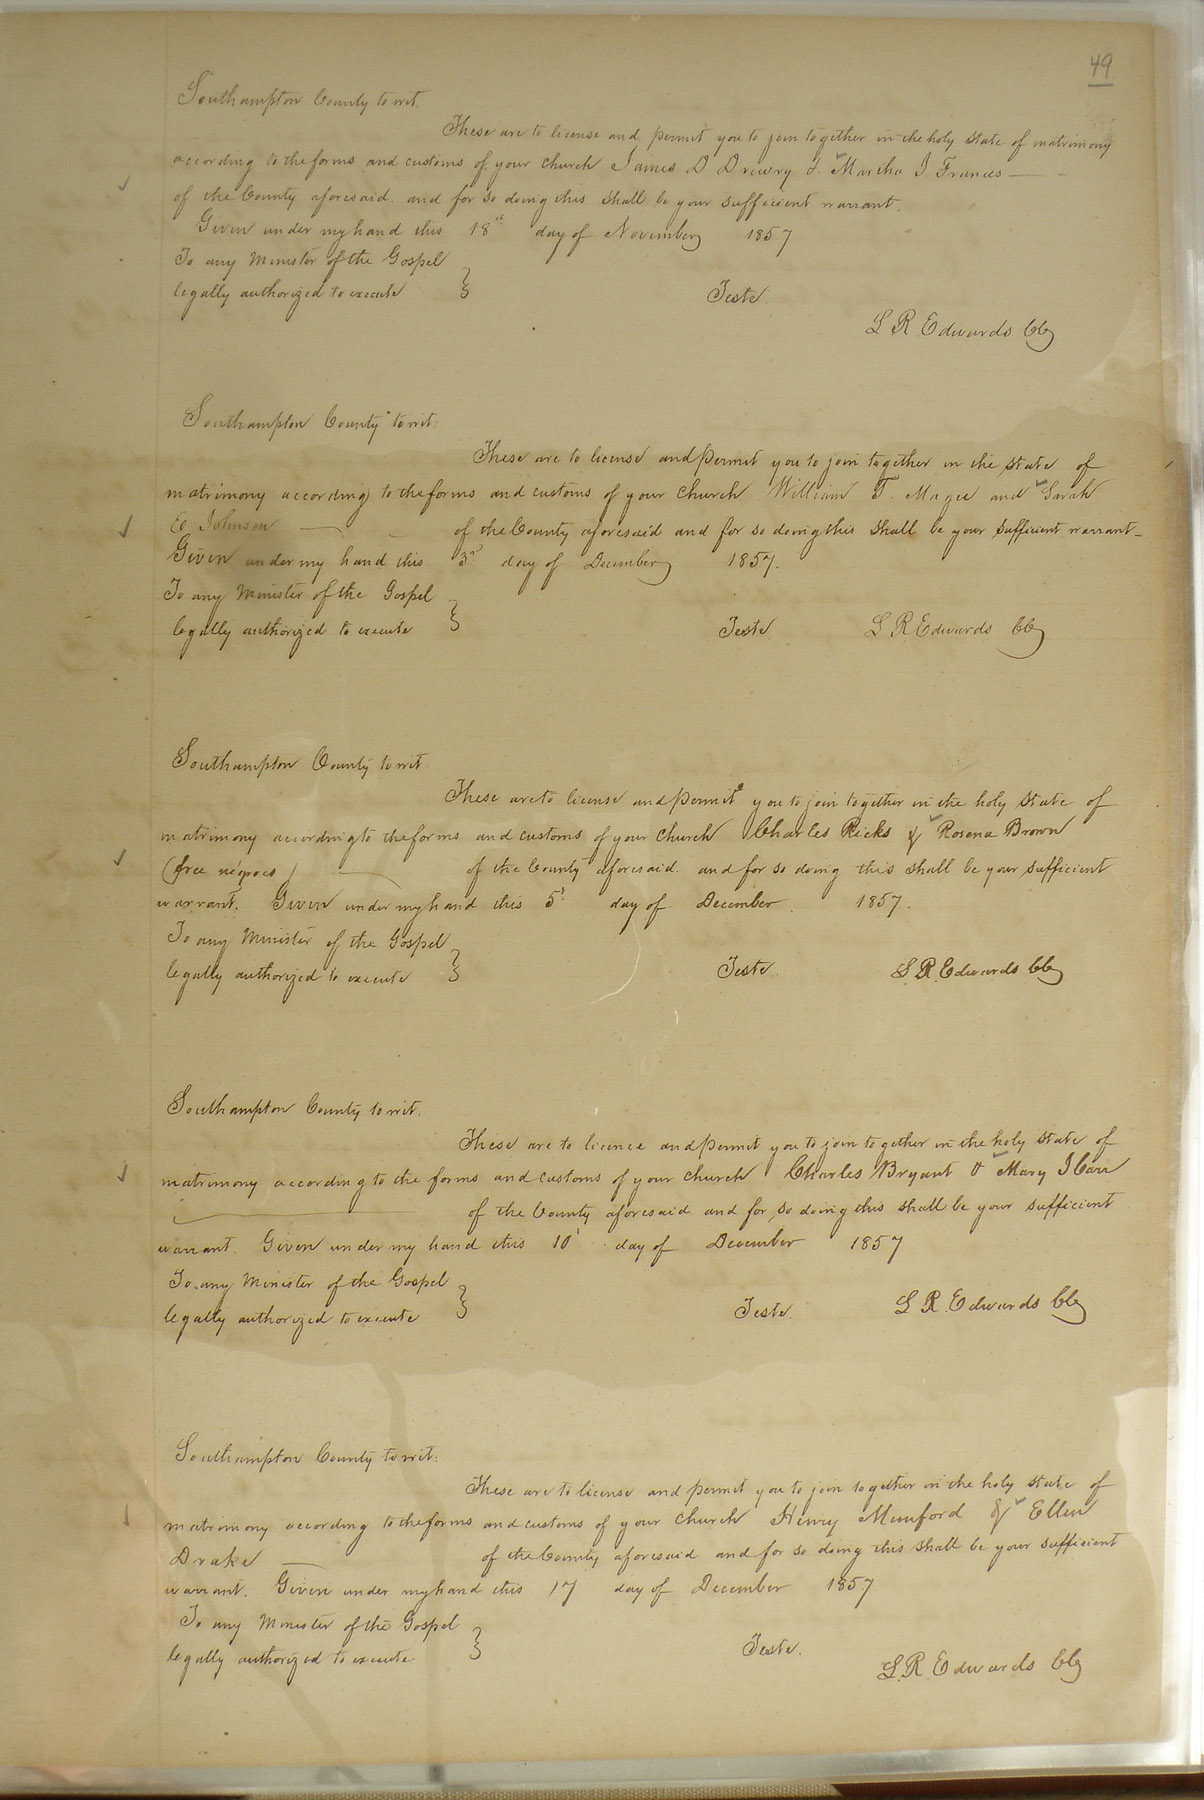 49
Southampton County to wit.
These are to license and permit you to join together in the holy state of matrimony
according to the forms and customs of your church James D Drewry & Martha J Frances
of the County aforesaid. and for so doing this shall be your sufficient warrant.
Given under my hand this 18th day of November 1857
To any Minister of the Gospel
legally authorized to execute
Teste.
L R Edwards Clk
Southampton County to wit:
These are to license and permit you to join together in the state of
matrimony according to the forms and customs of your church William T. Magee and Sarah
E. Johnson of the County aforesaid and for so doing this shall be your sufficient warrant
Given under my hand this 3rd day of December 1857.
To any Minister of the Gospel
legally authorized to execute
Teste. L R Edwards Clk
Southampton County to wit.
These are to license and permit you to join together in the holy state of
matrimony according to the forms and customs of your church Charles Ricks & Rosena Brown
(free negroes) of the County aforesaid. and for so doing this shall be your sufficient
warrant. Given under my hand this 5th day of December 1857.
To any Minister of the Gospel
legally authorized to execute
Teste L. R. Edwards Clk
Southampton County to wit.
These are to licence and permit you to join together in the holy state of
matrimony according to the forms and customs of your church Charles Bryant & Mary J Carr
of the County aforesaid and for so doing this shall be your sufficient
warrant. Given under my hand this 10th day of December 1857
To any Minister of the Gospel
legally authorized to execute
Teste. L R. Edwards Clk
Southampton County to wit:
These are to license and permit you to join together in the holy state of
matrimony according to the forms and customs of your church Henry Mumford & Ellen
Drake of the County aforesaid and for so doing this shall be your sufficient
warrant. Given under my hand this 17 day of December 1857
To any Minister of the Gospel
legally authorized to execute
Teste.
L. R. Edwards Clk